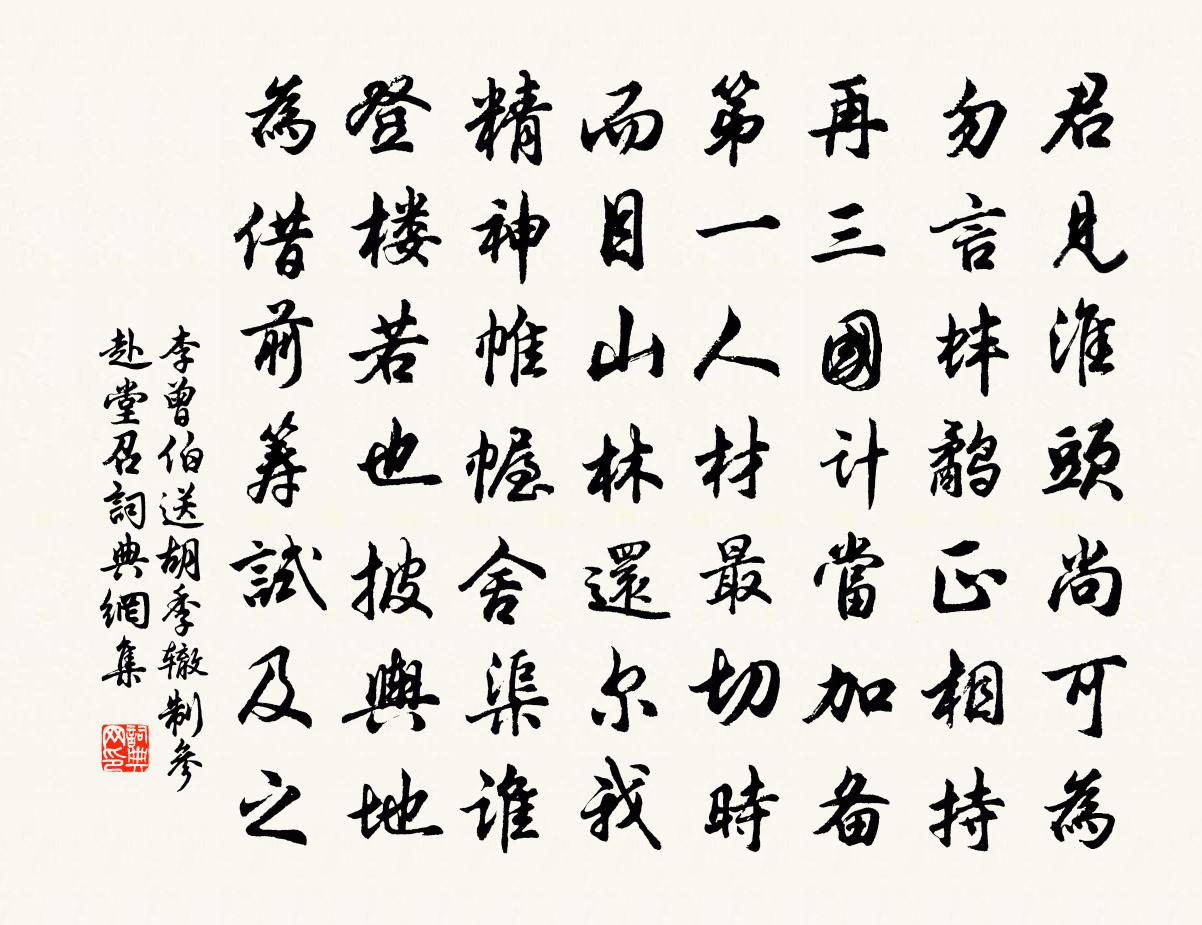 君見淮頭尚可為
勿言蚌鷸正相持
再三國计當加备
第一人材最切時
而目山林還尔我
精神帷幄舍渠谁
登楼若也披輿地
為借前筹試及之
李曾伯送胡季辙制參
赴堂召詞典網集
詞典网印